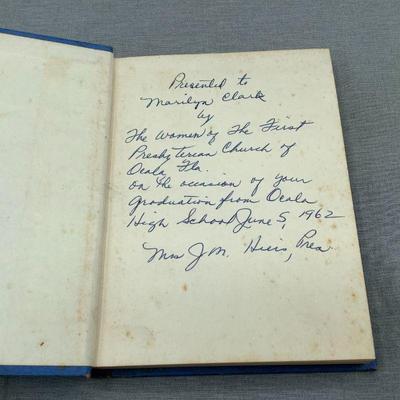 Presented to
Marilyn Clark
by
The Women of The First
Presbyterean Church of
Ocala, Fla.
on the occasion of your
graduation from Ocala
High School June 5, 1962
Mrs J. M.